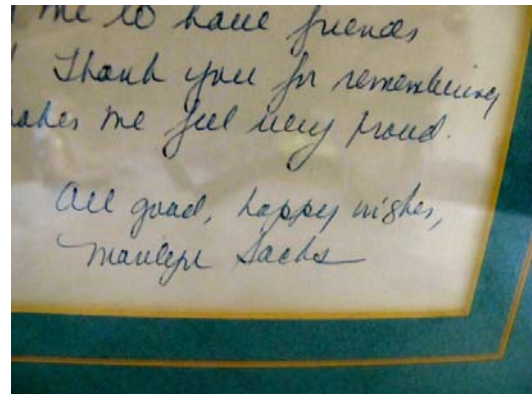 me to have friends
Thank you for remembering
makes me feel very proud.
All good, happy wishes,
Marilyn Sachs